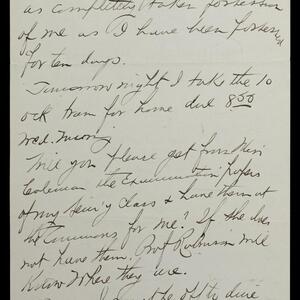 as completely taken possession
of me as I have been possessed
for ten days.
Tomorrow night I take the 10
ock train for home due 8 50
Wed. Morning
Will you please get from Miss
Coleman the Examination papers
of my class & have them at
the for me? If she does
not have them, Prof Robinson will
know where they are.
the